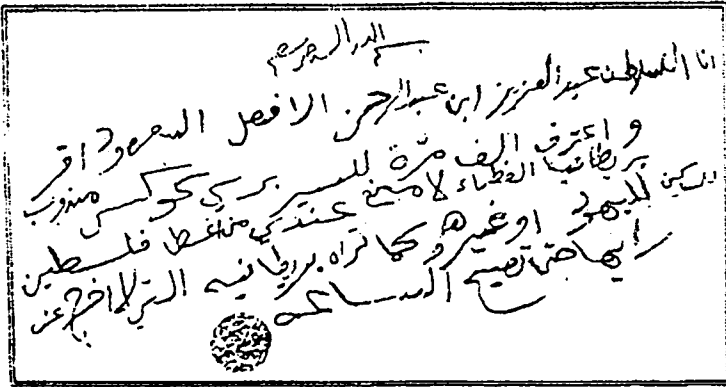 بسم الله الرحمن الرحيم
انا السلطان عبدالعزيز ابن عبدالرحمن الافصل السعود اقر
و اعترف الف مرة للسير برسي كوكس مندوب
بريطانيا العظماء لا منع عندي من اعطا فلسطين
لليهود او غيرهم كما تراه بريطانيه التي لا اخرج عن
رايها حتى تصيح الساعه